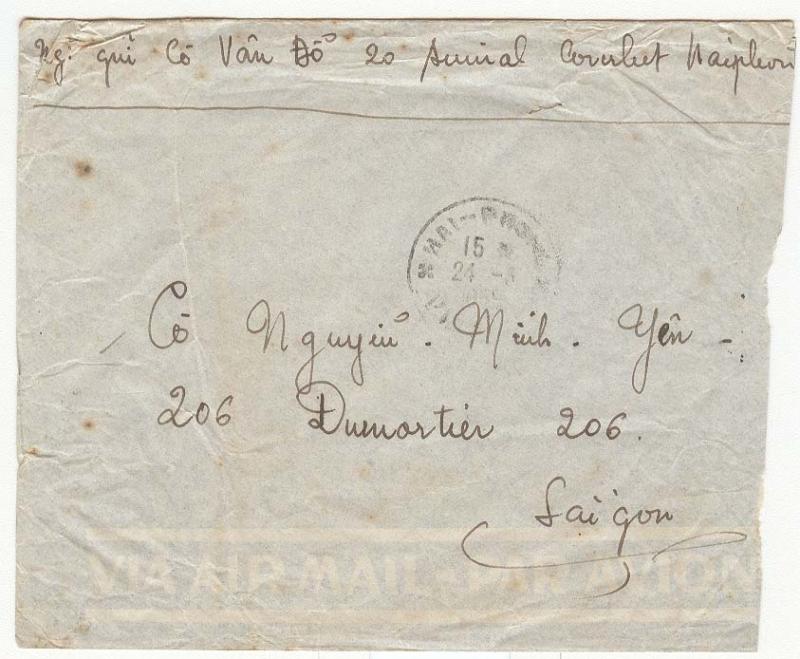 Ng: gưỉ Cô Vân Đổ 20 Amiral Courbet Haiphon
HAI-PHO
15
24 -
Cô Nguyễn. Minh. Yên -
206 Dumortier 206.
Saigon
VIA AIR MAIL-PAR AVION